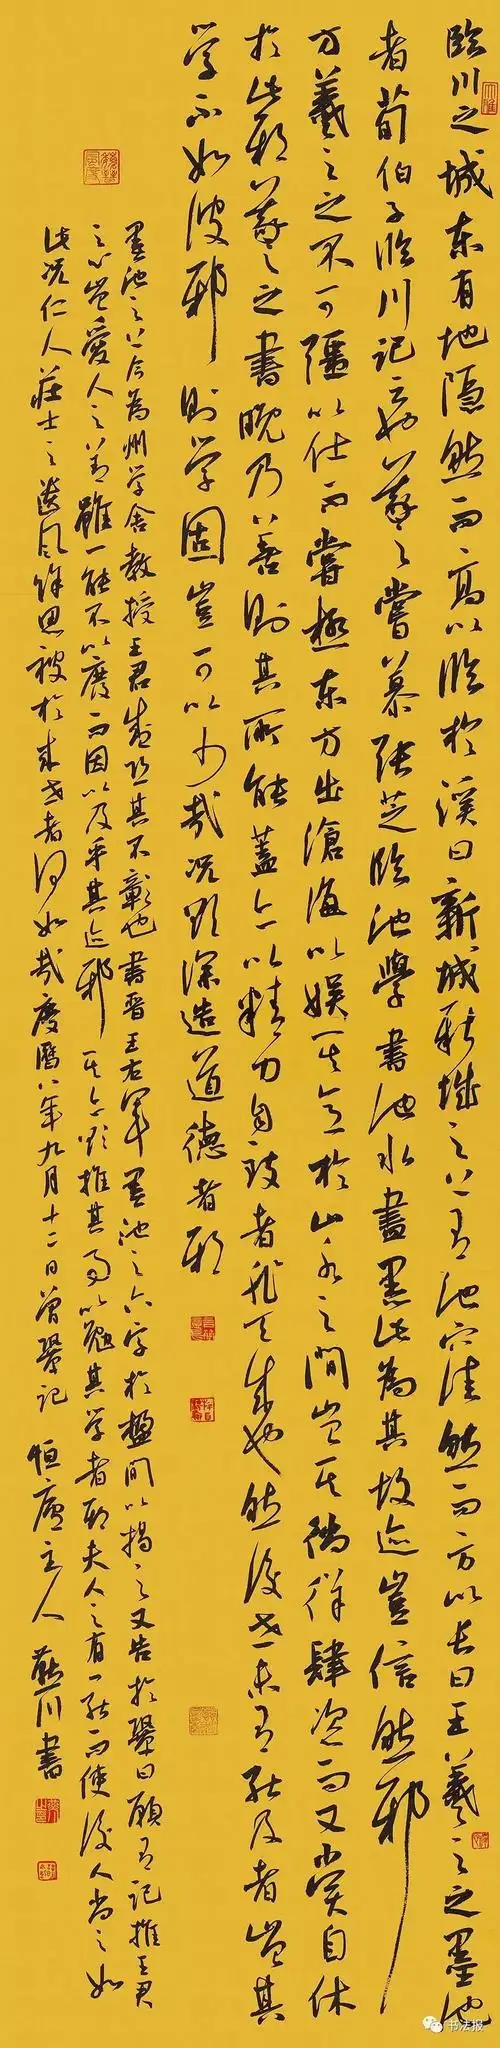 臨川之城東有地隱然而高以臨於溪曰新城新城之上有池穴洼然而方以長曰王羲之之墨池
者荀伯子臨川記云也羲之嘗慕張芝臨池學書池水盡黑此為其故迹豈信然邪
方羲之之不可彊以仕而嘗極東方出滄海以娛其意於山水之間豈其徜徉肆恣而又嘗自休
於此邪羲之之書晚乃善則其所能蓋亦以精力自致者非天成也然後世未有能及者豈其
学不如彼邪則学固豈可以少哉況欲深造道德者邪
墨池之上今為州学舍教授王君盛恐其不彰也書晉王右軍墨池之六字於楹間以揭之又告於鞏曰願有記推王君
之心豈愛人之善雖一能不以廢而因以及乎其迹邪其亦欲推其事以勉其学者邪夫人之有一能而使後人尚之如
此況仁人莊士之遺風餘思被於來世者何如哉慶曆八年九月十二日曾鞏記 恒廬主人 川書
书法报